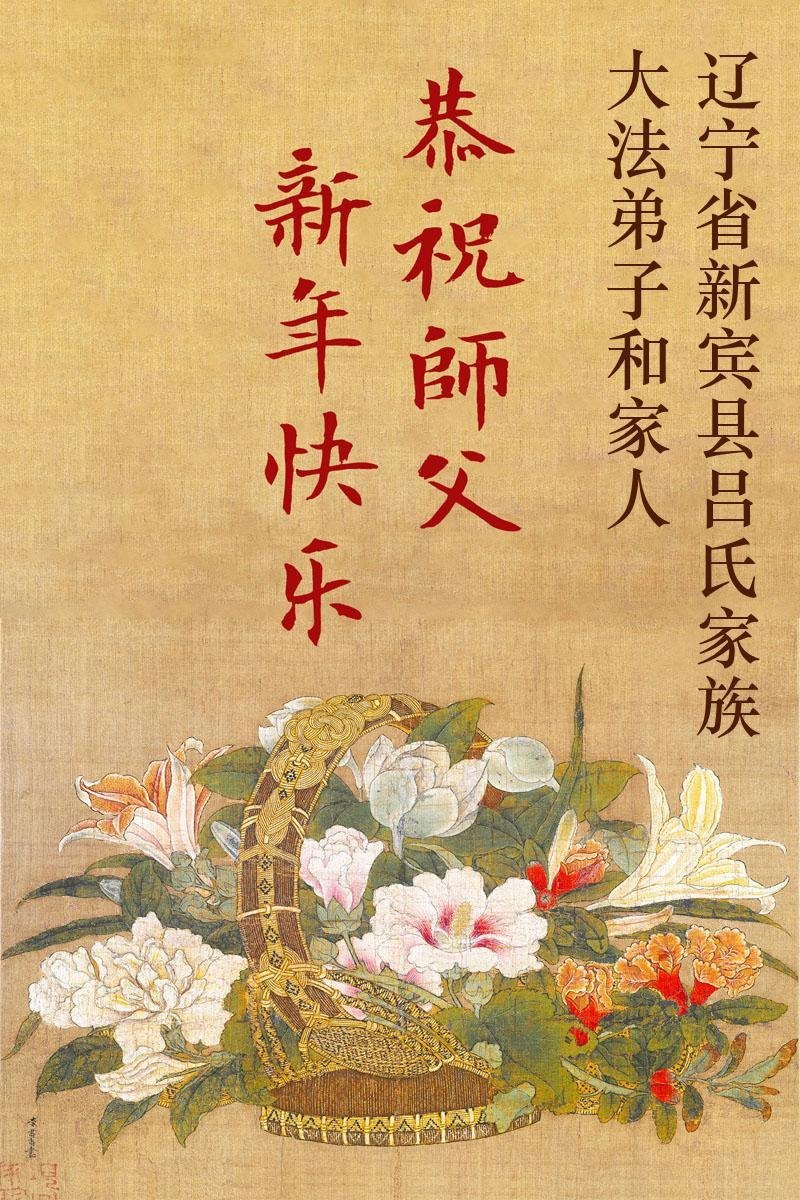 辽宁省新宾县吕氏家族
大法弟子和家人
恭祝師父
新年快乐